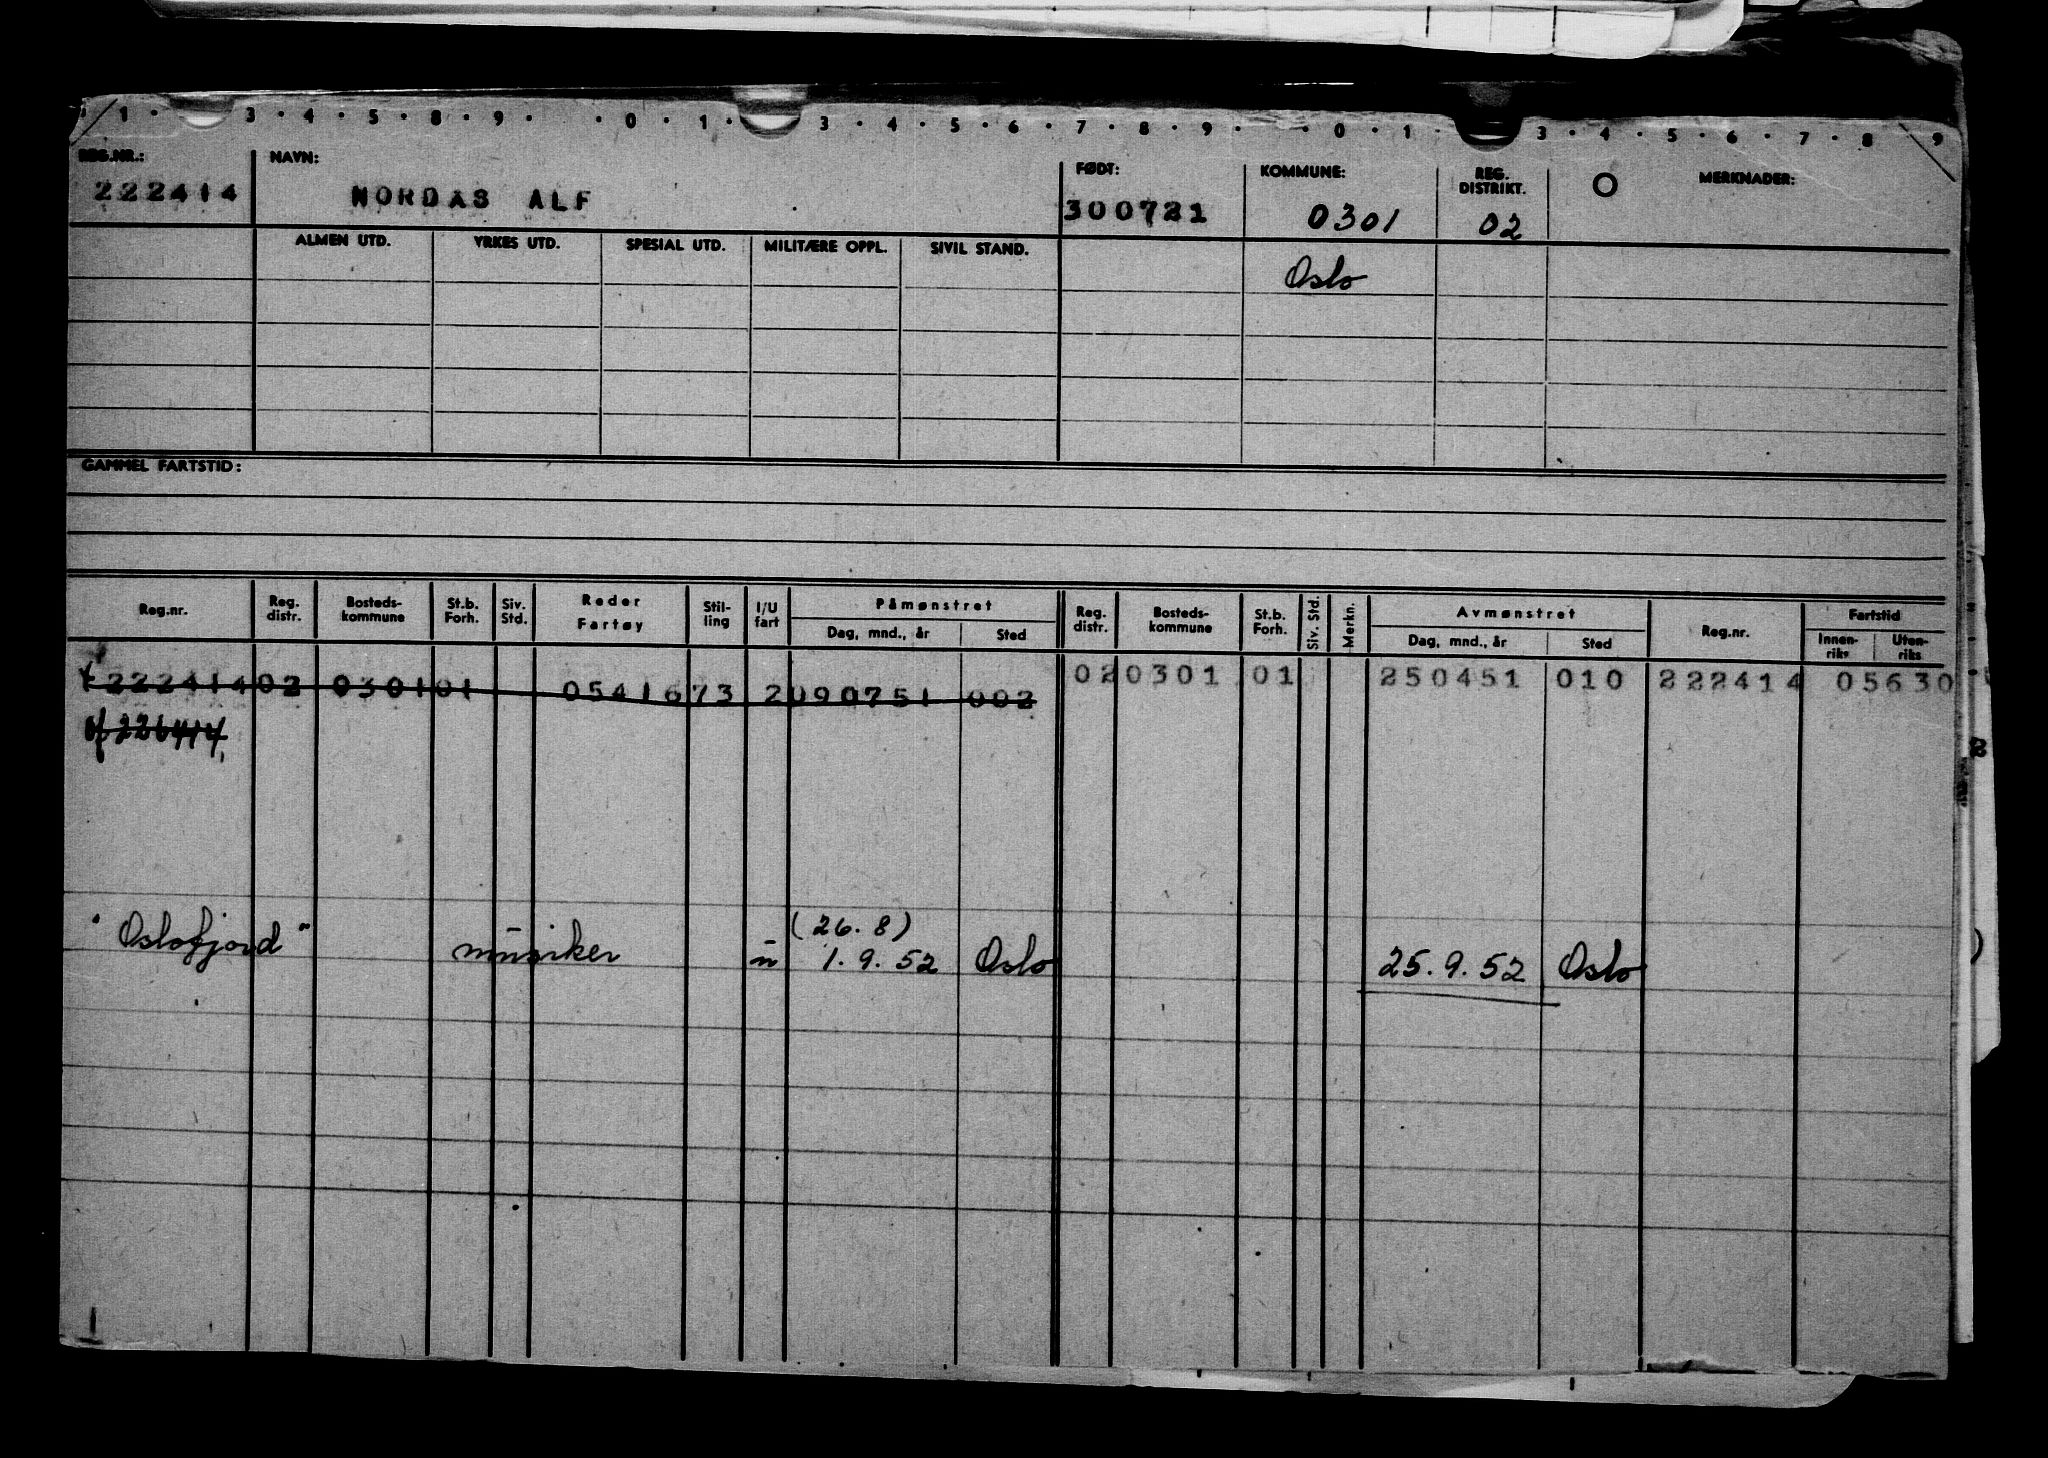 1 · 3 · 4 · 5 · 8 · 9 · · 0 · 1 · 3 · 4 · 5 · 6 · 7 · 8 · 9 · · 0 · 1 · 3 · 4 · 5 · 6 · 7 · 8 9
REG.NR.: NAVN: FØDT: KOMMUNE: REG. DISTRIKT. MERKNADER:
222414 NORDAS ALF 300721 0301 02
ALMEN UTD. YRKES UTD. SPESIAL UTD. MILITÆRE OPPL. SIVIL STAND. Oslo
GAMMEL FARTSTID:
Reg.nr. Reg. distr. Bosteds- kommune St.b. Forh. Siv. Std. Reder Fartøy Stil- ling I/U fart Påmønstret Dag, mnd., år Sted Reg. distr. Bosteds- kommune St.b. Forh. Siv. Std. Merkn. Avmønstret Dag, mnd., år Sted Reg.nr. Fartstid Innen- riks Uten- riks
222414 02 0301 01 05416 73 2 090751 002 02 0301 01 250451 010 222414 05630
226414
(26.8)
"Oslofjord" musiker u 1.9.52 Oslo 25.9.52 Oslo